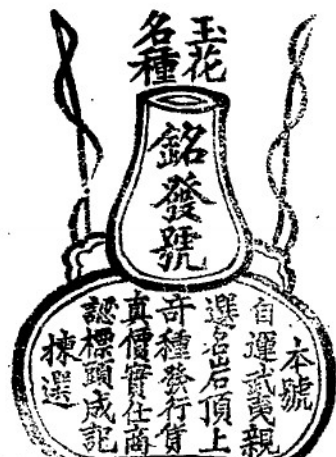 玉花
名種
銘發號
本號
自運武夷親
選名岩頂上
奇種發行貨
真價實仕商
認標頭成記
揀選